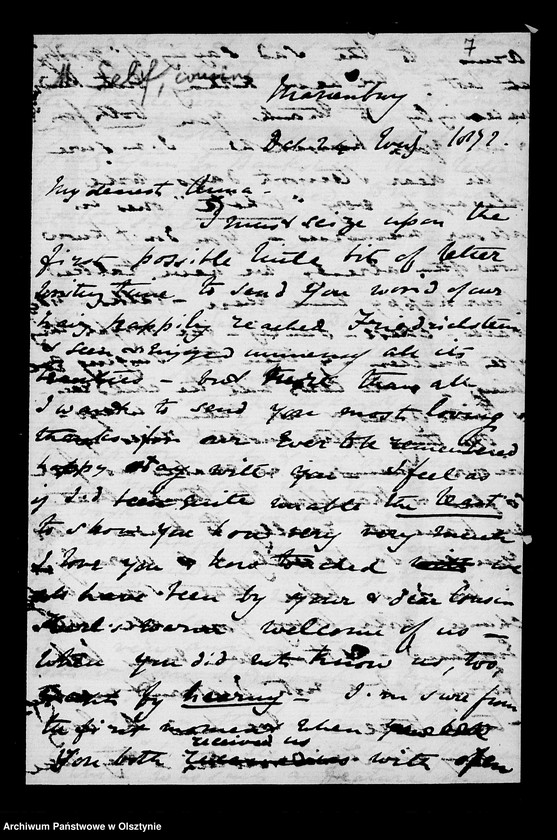 7
self, cousin
Marienburg.
1872.
My dearest Anna -
I must seize upon the
first possible little bit of letter
writing time - to send you word of our
having happily reached Friedrichstein
& seen & enjoyed immensely all its
beauties - but more than all
I want to send you most loving
thanks for our Ever to be remembered
happy stay with you - I feel as
if I'd been quite unable the least
to show you how very very much
I love you & how touched we
all have been by your & dear Cousin
Karl's warm welcome of us -
When you did not know us, too,
by hearing - I'm sure from
the first moment when
You both received us with open
Archiwum Państwowe w Olsztynie